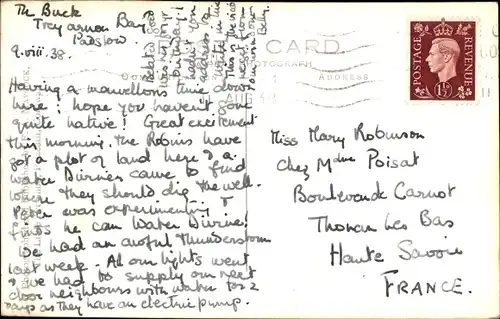 The Buck
Treyarnon Bay
Padstow.
9.viii.38.
Having a marvellous time down
here! hope you haven't gone
quite native! Great excitement
this morning. The Robins have
got a plot of land here & a
Water Diviner came to find
where they should dig the well.
Peter was experimenting &
finds he can Water Divine!
We had an awful thunderstorm
last week. All our lights went
& we had to supply our next
door neighbours with water for 2
days as they have an electric pump.
CARD.
ADDRESS
POSTAGE
REVENUE
1½D
Miss Mary Robinson
Chez Mdme Poisat
Boulevard Carnot
Thonon Les Bas
Haute Savoie
FRANCE.